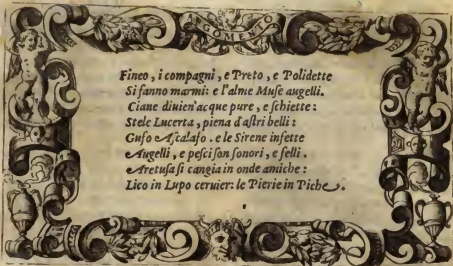 ARGOMENTO
Fineo, i compagni, e Preto, e Polidette
Si fanno marmi: e l'alme Muse augelli.
Ciane diuien'acque pure, e schiette:
Stele Lucerta, piena d'astri belli:
Gufo Ascalafo. e le Sirene infette
Augelli, e pesci son sonori, e felli.
Aretusa si cangia in onde amiche:
Lico in Lupo ceruier: le Pierie in Piche.